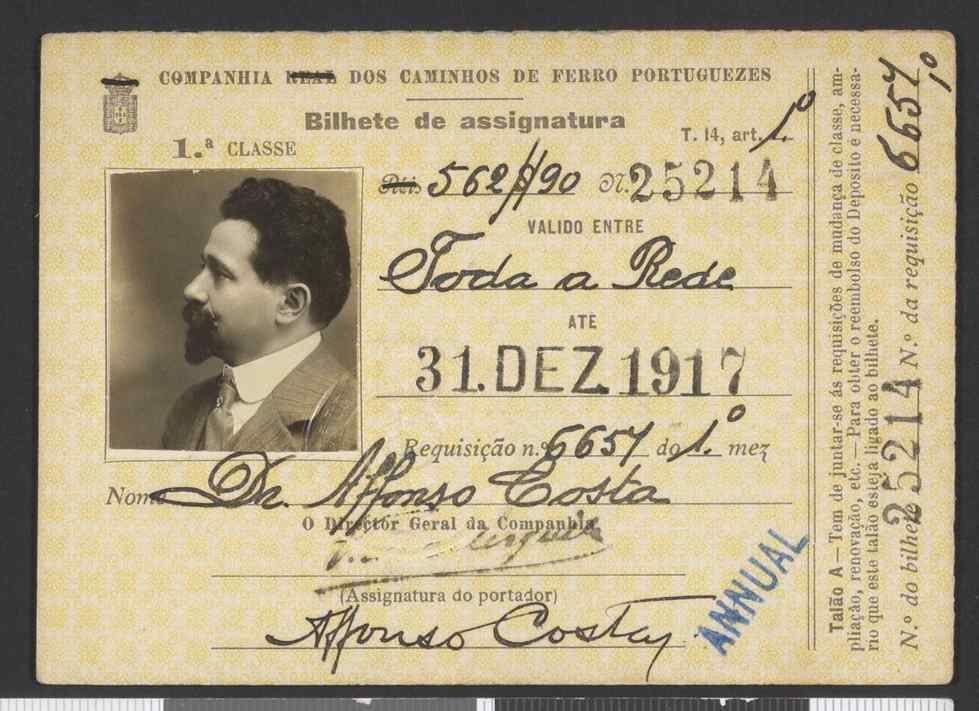 COMPANHIA REAL DOS CAMINHOS DE FERRO PORTUGUEZES
Bilhete de assignatura
1.ª CLASSE
T. 14, art. 1.º
Réis 562$90 N.º 25214
VALIDO ENTRE
Toda a Rede
ATÉ
31. DEZ. 1917
Requisição n.º 6657 do 1.º mez
Nome Dr. Affonso Costa
O Director Geral da Companhia,
(Assignatura do portador)
Affonso Costa
ANNUAL
Talão A — Tem de juntar-se ás requisições de mudança de classe, am-
pliação, renovação, etc. — Para obter o reembolso do Deposito é necessa-
rio que este talão esteja ligado ao bilhete.
N.º do bilhete 25214 N.º da requisição 6657 1.º